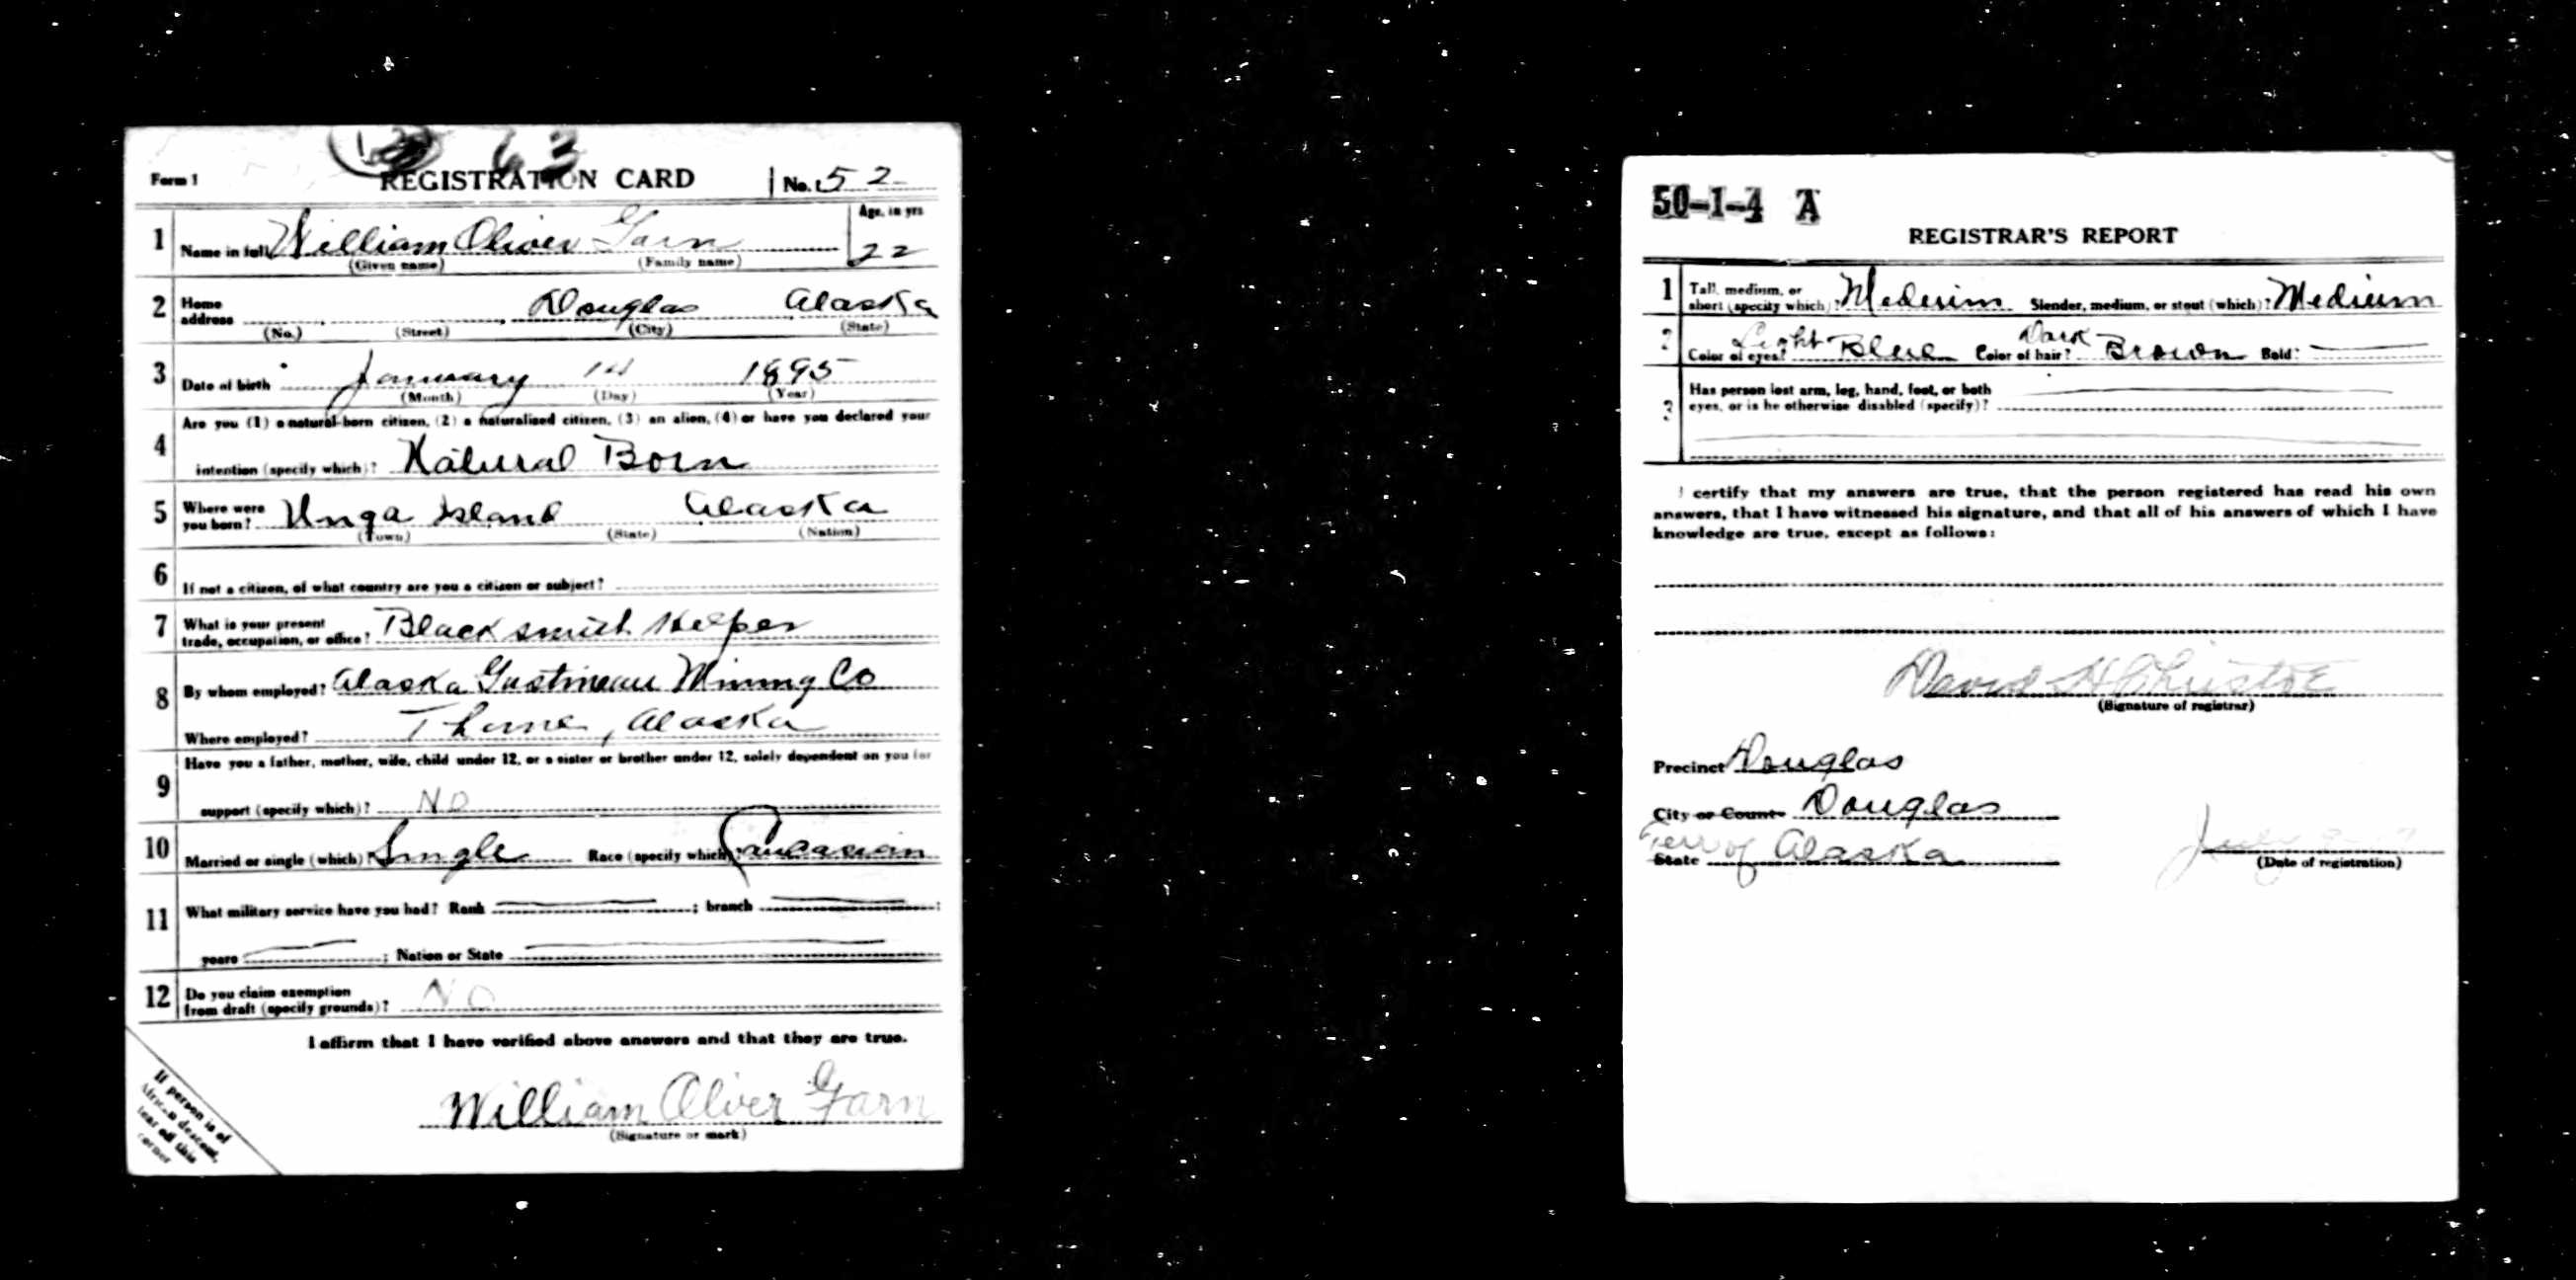 63
Form 1 REGISTRATION CARD No. 52
1 Name in full William Oliver Garn Age, in yrs 22
(Given name) (Family name)
2 Home address Douglas Alaska
(No.) (Street) (City) (State)
3 Date of birth January 1st 1895
(Month) (Day) (Year)
Are you (1) a natural-born citizen, (2) a naturalized citizen, (3) an alien, (4) or have you declared your
4 intention (specify which)? Natural Born
5 Where were you born? Unga Island Alaska
(Town) (State) (Nation)
6 If not a citizen, of what country are you a citizen or subject?
7 What is your present trade, occupation, or office? Blacksmith Helper
8 By whom employed? Alaska Gastineau Mining Co
Where employed? Thane, Alaska
Have you a father, mother, wife, child under 12, or a sister or brother under 12, solely dependent on you for
9 support (specify which)? No
10 Married or single (which)? Single Race (specify which)? Caucasian
11 What military service have you had? Rank ; branch ;
years ; Nation or State
12 Do you claim exemption from draft (specify grounds)? No
I affirm that I have verified above answers and that they are true.
William Oliver Garn
(Signature or mark)
If person is of
African descent,
tear off this
corner
50-1-4 A
REGISTRAR'S REPORT
1 Tall, medium, or short (specify which)? Medium Slender, medium, or stout (which)? Medium
2 Color of eyes? Light Blue Color of hair? Dark Brown Bald?
Has person lost arm, leg, hand, foot, or both
3 eyes, or is he otherwise disabled (specify)?
I certify that my answers are true, that the person registered has read his own
answers, that I have witnessed his signature, and that all of his answers of which I have
knowledge are true, except as follows:
David H Christoe
(Signature of registrar)
Precinct Douglas
City or County Douglas
Terr of
State Alaska July
(Date of registration)